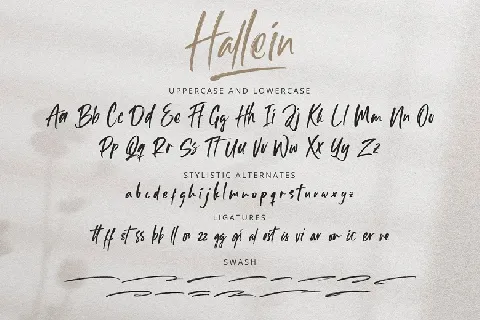 Hallein
UPPERCASE AND LOWERCASE
Aa Bb Cc Dd Ee Ff Gg Hh Ii Jj Kk Ll Mm Nn Oo
Pp Qq Rr Ss Tt Uu Vv Ww Xx Yy Zz
STYLISTIC ALTERNATES
abcdefghijklmnopqrstuvwxyz
LIGATURES
tt ff st ss bb ll or zz gg gi al ost is vi ar on ic er re
SWASH